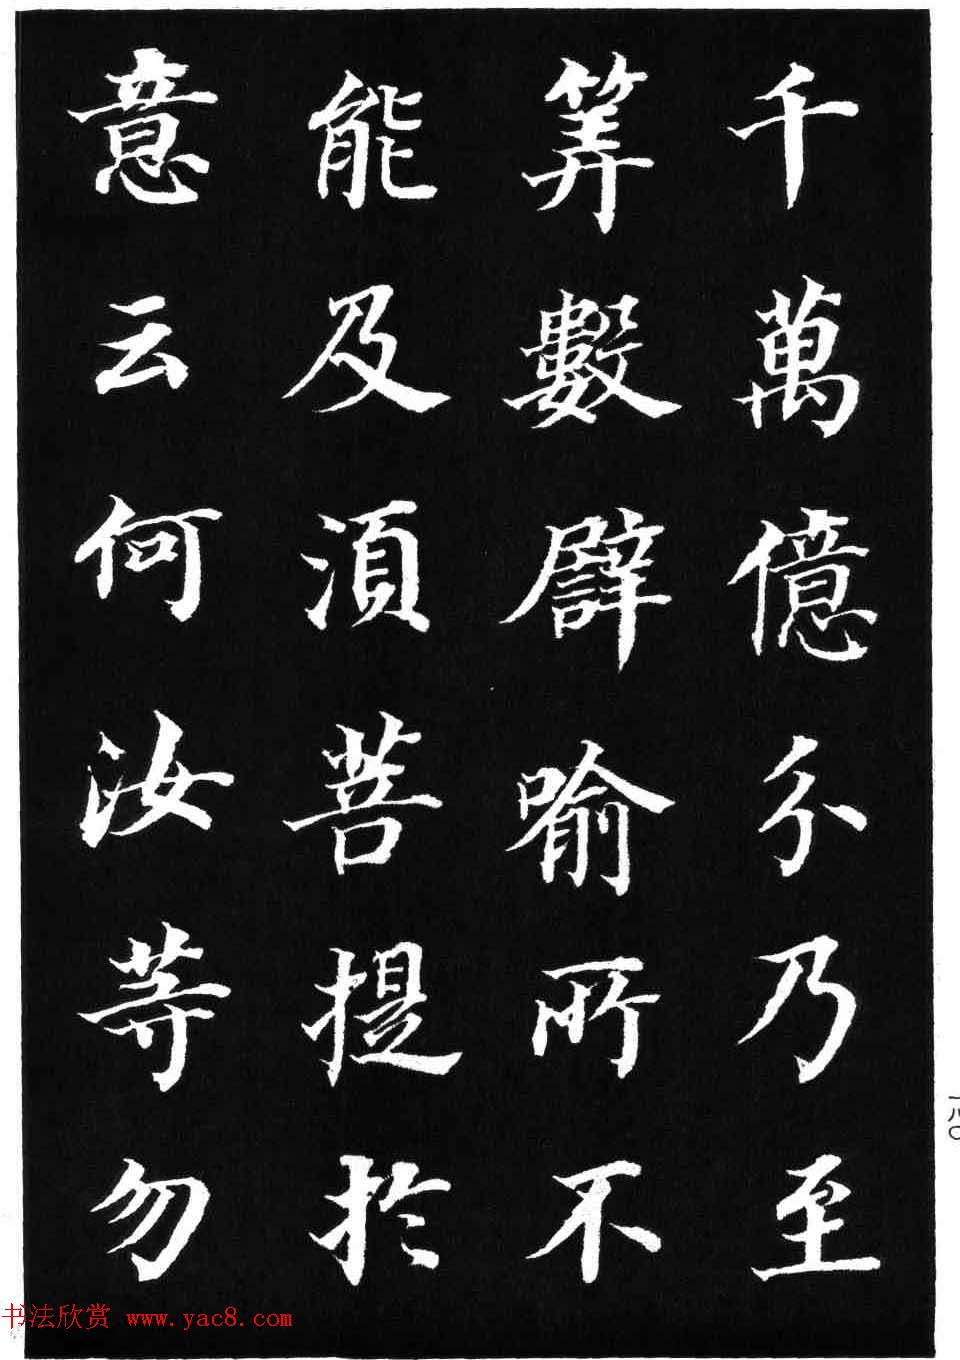 千萬億分乃至
筭數譬喻所不
能及須菩提於
意云何汝等勿
一八〇
书法欣赏 www.yac8.com